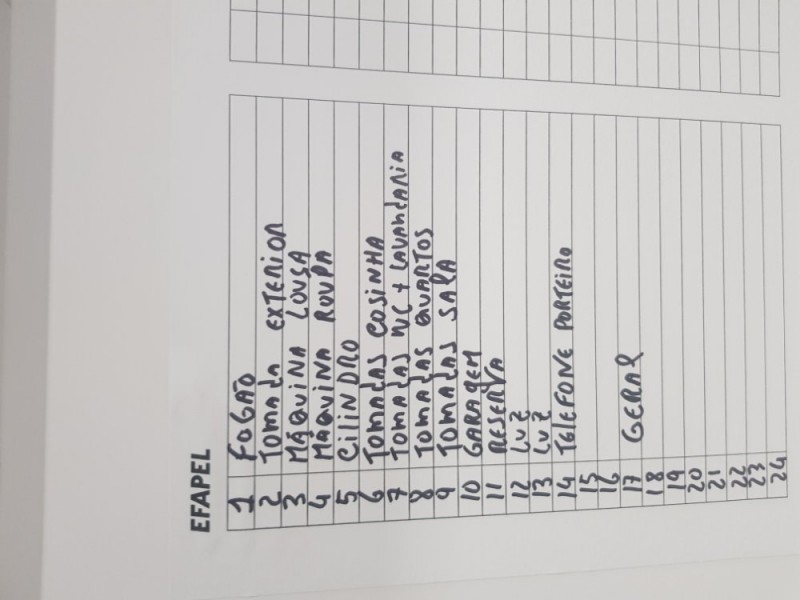 EFAPEL
1 FOGÃO
2 TOMADA EXTERIOR
3 MÁQUINA LOUÇA
4 MAQUINA ROUPA
5 CILINDRO
6 TOMADAS COSINHA
7 TOMADAS WC + LAVANDARIA
8 TOMADAS QUARTOS
9 TOMADAS SALA
10 GARAGEM
11 RESERVA
12 LUZ
13 LUZ
14 TELEFONE PORTEIRO
15
16
17 GERAL
18
19
20
21
22
23
24